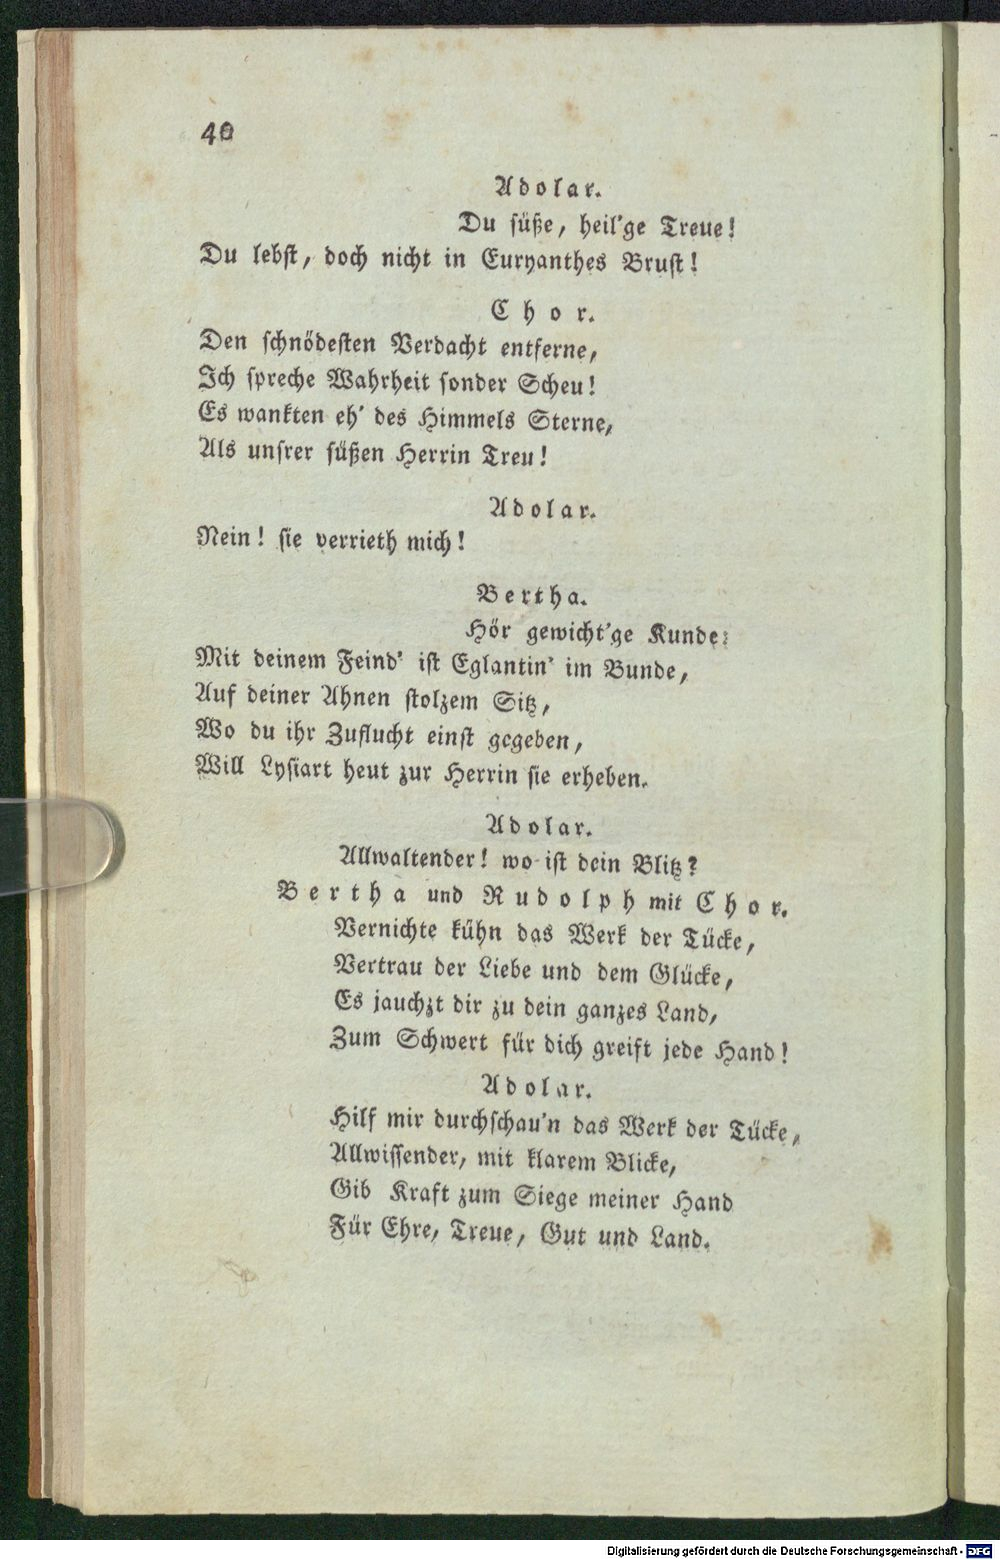 40
Adolar.
Du süße, heil'ge Treue!
Du lebst, doch nicht in Euryanthes Brust!
Chor.
Den schnödesten Verdacht entferne,
Ich spreche Wahrheit sonder Scheu!
Es wankten eh' des Himmels Sterne,
Als unsrer süßen Herrin Treu!
Adolar.
Nein! sie verrieth mich!
Bertha.
Hör gewicht'ge Kunde:
Mit deinem Feind' ist Eglantin' im Bunde,
Auf deiner Ahnen stolzem Sitz,
Wo du ihr Zuflucht einst gegeben,
Will Lysiart heut zur Herrin sie erheben.
Adolar.
Allwaltender! wo ist dein Blitz?
Bertha und Rudolph mit Chor.
Vernichte kühn das Werk der Tücke,
Vertrau der Liebe und dem Glücke,
Es jauchzt dir zu dein ganzes Land,
Zum Schwert für dich greift jede Hand!
Adolar.
Hilf mir durchschau'n das Werk der Tücke,
Allwissender, mit klarem Blicke,
Gib Kraft zum Siege meiner Hand
Für Ehre, Treue, Gut und Land.
Digitalisierung gefördert durch die Deutsche Forschungsgemeinschaft - DFG